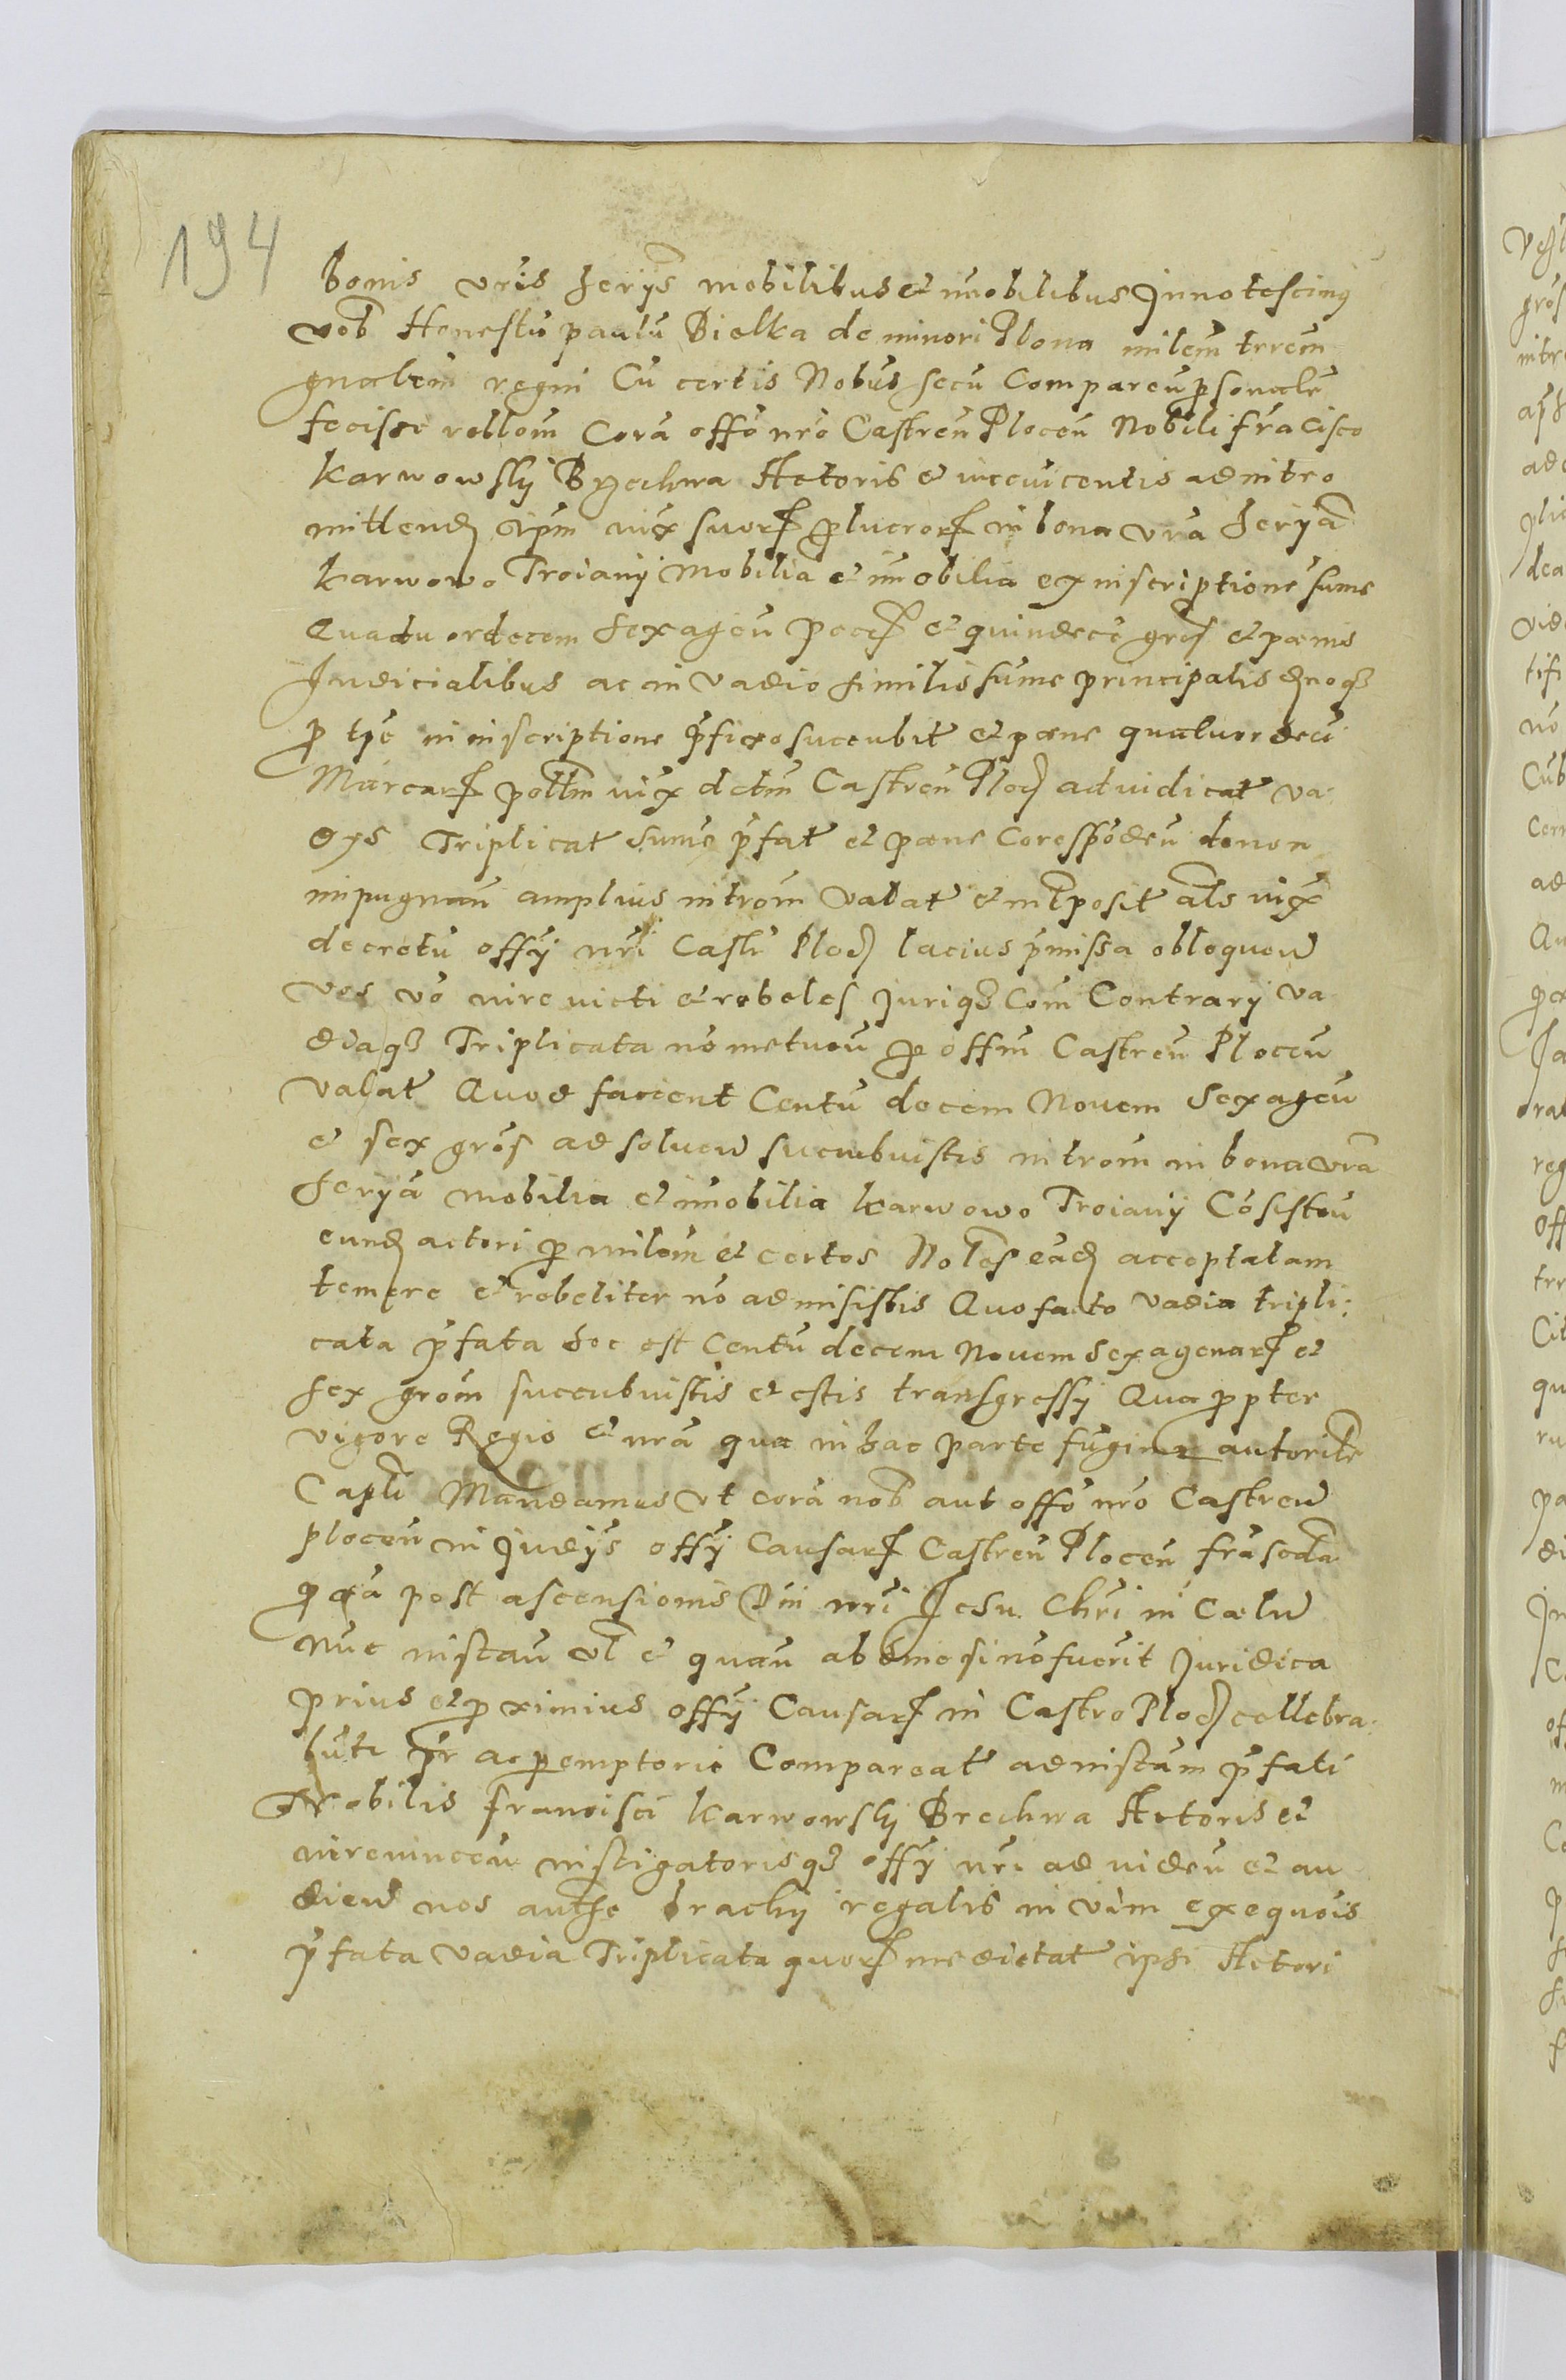 194
bonis vr̃is herijs mobilibus et im̃obilibus Innotescimq
vob Honestũ paulũ Bielka de minori Plona milem̃ trrem̃
gnalem̃ regni Cũ certis Nobus̃ secũ Compareñ psonale͠r
fecisse rellom̃ Corã offõ nr̃o Castreñ Ploceñ Nobili frãcisco
Karwowsky Brzechwa Actoris et inreuicentis ad intro
mittend ipm̃ vig suorꝝ plucrorꝝ in bona vr̃a heriya
Karwowo Troiany Mobilia et im̃obilia ex inscriptione sum̃e
Quatuordecem sexageñ pecc et quindecẽ gros et pænis
Judicialibus ac in vadio similis sum̃e principalis deno qꝫ
p tpẽ in inscriptione p̃fixo succubit̃ et pæne quatuordeci
Marcarꝝ polłm vig dctm̃ Castreñ Ploc adiudicat̃ va
dys Triplicat̃ sum̃e p̃fat̃ et pæne Corespõdeñ de non
impugnañ amplius introm̃ valat̃ et intposit̃ als̃ vig
decretũ offy nr̃i Castr̃ Ploc lacius p̃missa obloqueñ
vos vo inre victi et rebeles Juriqꝫ Com̃ Contrary va
diaqꝫ Triplicata nõ metueñ p offm̃ Castreñ Ploceñ
valat̃ Quod facient Centũ decem Nouem Sexageñ
et sex gros̃ ad solueñ succubuistis introm̃ in bona vr̃a
herijã mobilia et im̃obilia Karwowo Troiany Cõsisteñ
eund actori p milem̃ et certos Nobles eãd acceptatam
temere et rebeliter nõ admisistis Quo facto vadia tripli:
cata p̃fata hoc est Centũ decem Nouem Sexagenarꝝ et
sex grom̃ succubuistis et estis transgressy Qua ppter
vigore Regio et nr̃a qua in hac parte fũgimr autorite
Capli Mandamus vt corã nob aut offõ nr̃o Castreñ
ploceñ in Judijs offy Causarꝝ Castreñ Ploceñ fr̃a scda
pxã post ascensionis Dni nr̃i Jesu Chri in Cælũ
nũc instañ vl et quañ abinde si nõ fuerit Juridica
prius et p ximius offy Causarꝝ in Castro Ploc cellebra:
but̃r pr̃ ac pemptorie Compareat̃ ad instam̃ p̃fati
Nobilis francisci Karwowsky Brechwa Actoris et
inreuinceñ instigatorisqꝫ offy nr̃i ad videñ et au
dieñ nos authe brachy regalis in vim exequõis
p̃fata vadia Triplicata quorꝝ medietat̃ ipsi Actori